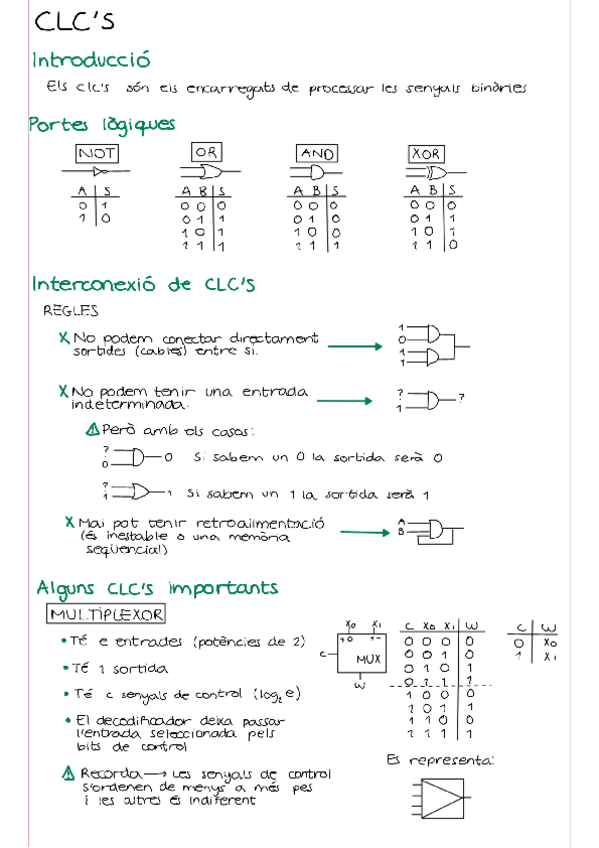 CLC'S
Introducció
Els clc's són els encarregats de processar les senyals binàries
Portes lògiques
NOT OR AND XOR
A S A B S A B S A B S
0 1 0 0 0 0 0 0 0 0 0
1 0 0 1 1 0 1 0 0 1 1
1 0 1 1 0 0 1 0 1
1 1 1 1 1 1 1 1 0
Interconexió de CLC'S
REGLES
X No podem conectar directament
sortides (cables) entre si.
1
0
1
1
X No podem tenir una entrada
indeterminada.
?
1
?
⚠ Però amb els casos:
?
0
0 Si sabem un 0 la sortida serà 0
?
1
1 Si sabem un 1 la sortida serà 1
X Mai pot tenir retroalimentació
(és inestable o una memòria
seqüencial)
A
B
Alguns CLC'S importants
MULTIPLEXOR
• Té e entrades (potències de 2)
• Té 1 sortida
• Té c senyals de control (log₂e)
• El decodificador deixa passar
l'entrada seleccionada pels
bits de control
⚠ Recorda → Les senyals de control
s'ordenen de menys a més pes
i les altres és indiferent
X0 X1
C
MUX
W
C X0 X1 W
0 0 0 0
0 0 1 0
0 1 0 1
0 1 1 1
1 0 0 0
1 0 1 1
1 1 0 0
1 1 1 1
C W
0 X0
1 X1
Es representa: